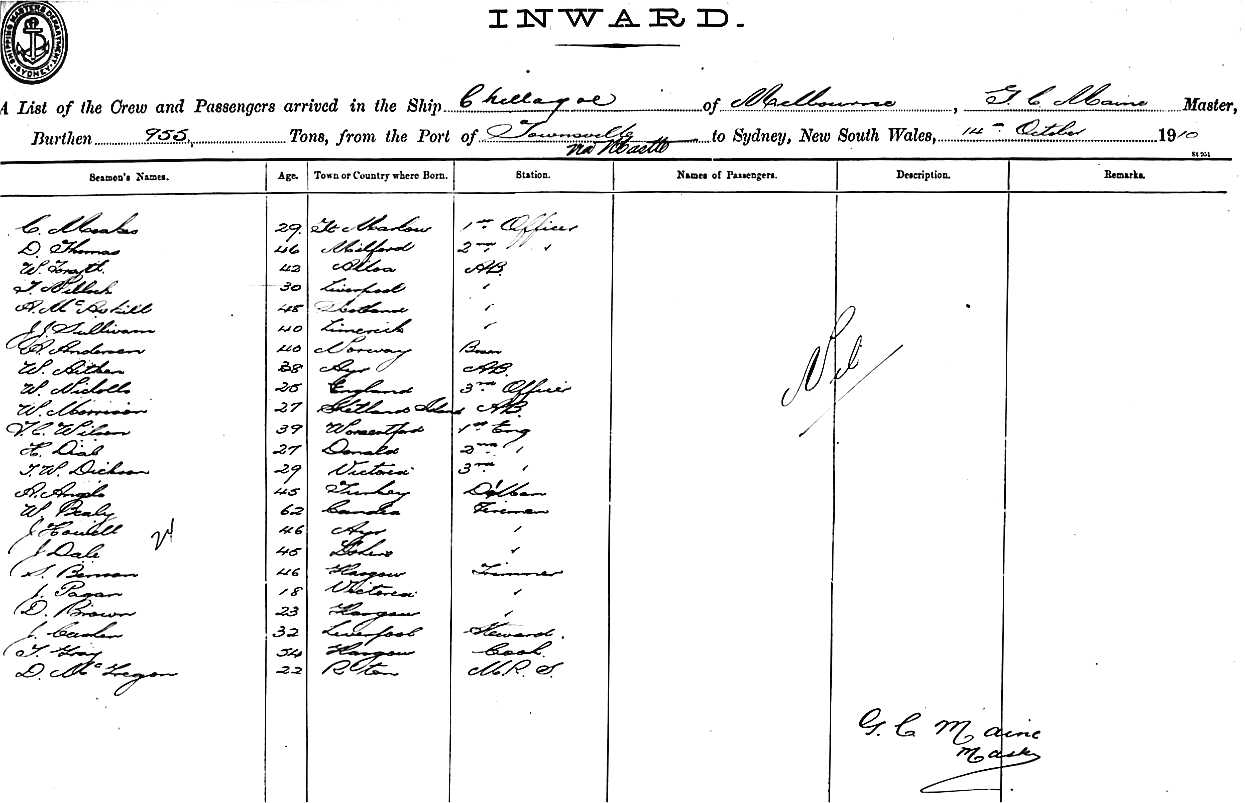 SHIPPING MASTERS DEPARTMENT SYDNEY
INWARD.
A List of the Crew and Passengers arrived in the Ship Chillagoe of Melbourne, G. C. Maine Master,
Burthen 955, Tons, from the Port of Townsville to Sydney, New South Wales, 14th October 1910
via NCastle
Seamen's Names. Age. Town or Country where Born. Station. Names of Passengers. Description. Remarks.
29 Gt Marlow 1st Officer
D. Thomas 46 Milford 2nd "
W. Forsyth 42 Alloa AB.
30 Liverpool "
A. McAskill 48 Scotland "
J. J. Sullivan 40 Limerick "
A. Andersen 40 Norway Bosun
W. Aitken 38 Ayr AB.
W. Nicholls 25 England 3rd Officer
W. Morrison 27 Shetland Island AB.
V. C. Wilson 39 1st Eng
H. Dial 27 Donald 2nd "
T. W. Dickson 29 Victoria 3rd "
A. Anglo 45 Turkey
W. Bealy 62 Candia Fireman
J. Howell 46 Ayr "
24
J. Dale 45 "
S. Benson 46 Glasgow Trimmer
J. Pagan 18 Victoria "
D. Brown 23 Glasgow "
32 Liverpool Steward.
T. Gray 54 Glasgow Cook.
D. McGregor 22 M. R. S.
Nil
G. C Maine
Master